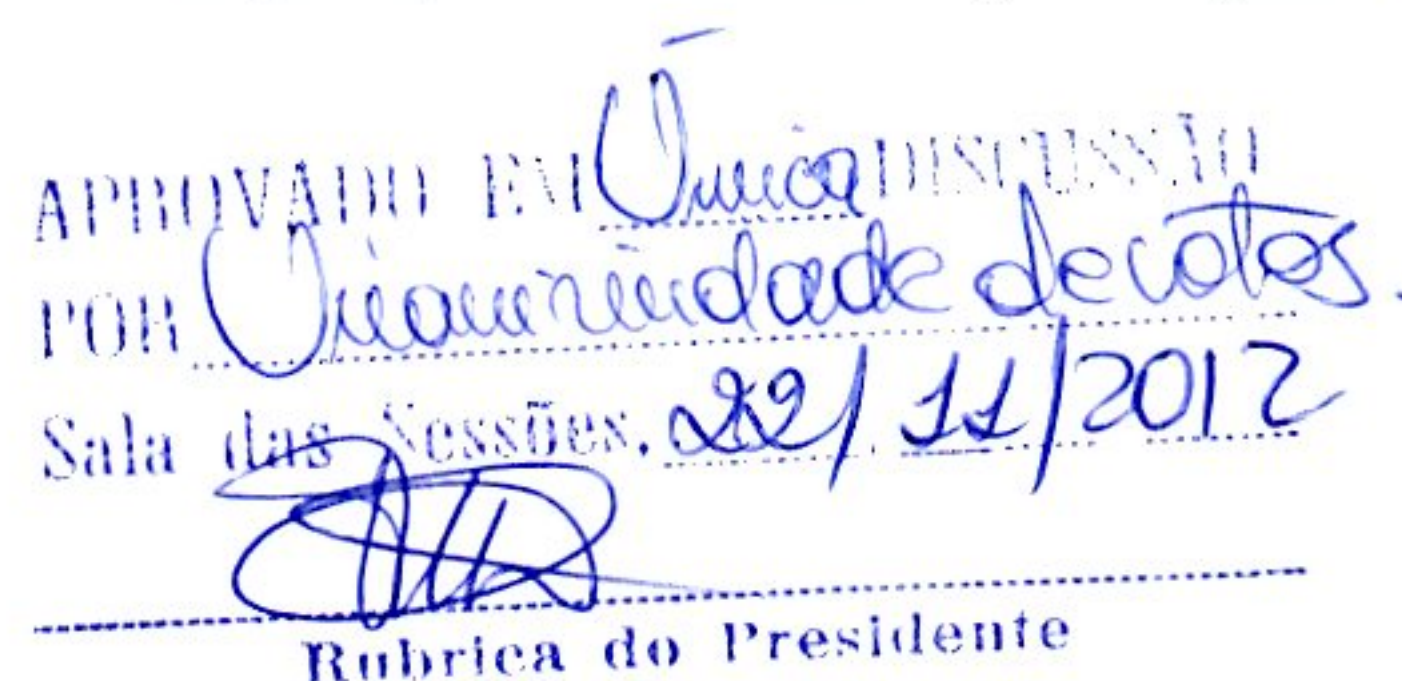 APROVADO EM Única DISCUSSÃO
POR Unanimidade de votos.
Sala das Sessões, 22/11/2012
Rubrica do Presidente